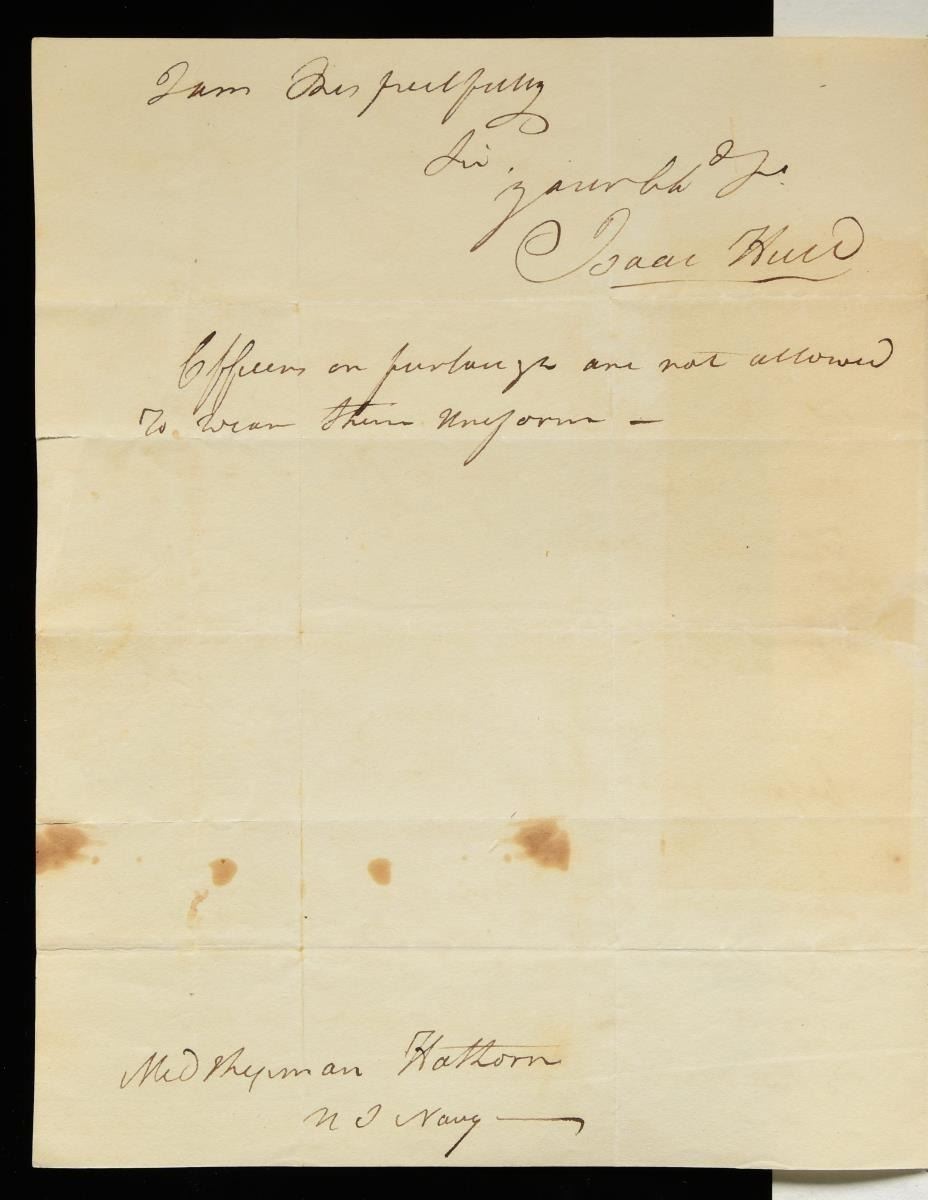 I am Respectfully
Sir,
your Obd St.
Isaac Hull
Officers on furlough are not allowed
To wear their Uniform —
Midshipman Hathorn
U S Navy —